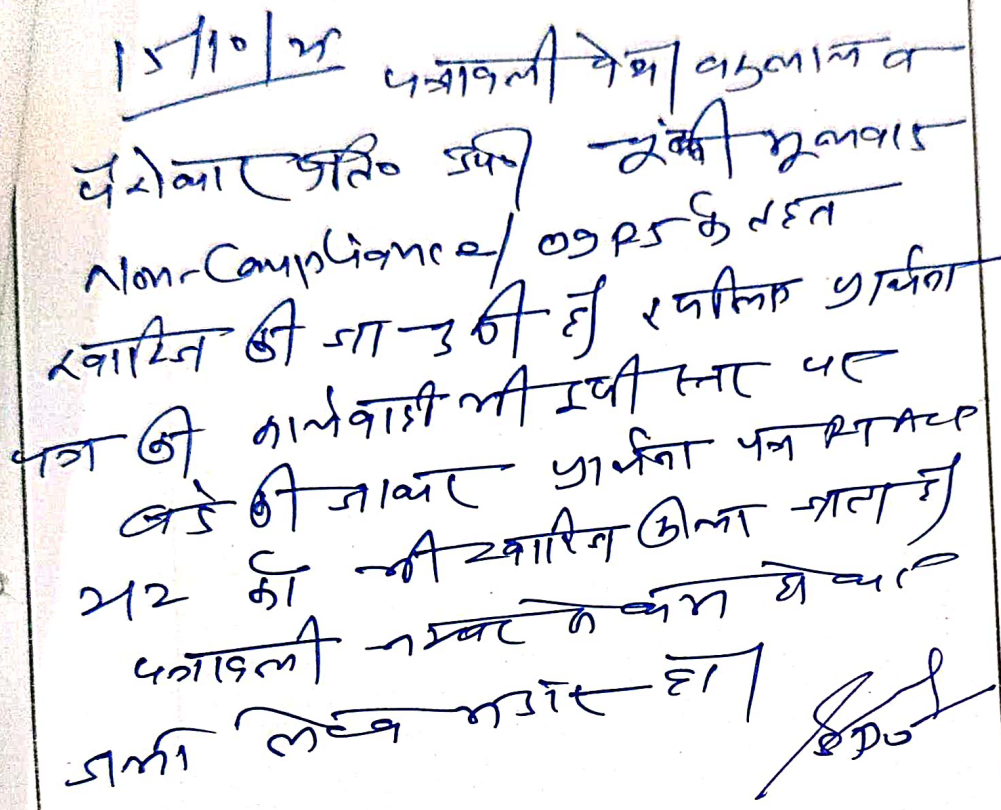 15/10/25 पत्रावली पेश। वकुलाल व
पैरोकार प्रति० उप०। चूंकी मूलवाद
Non-Compliance/ O9R5 के तहत
खारिज की जा चुकी है। इसलिए प्रार्थना
पत्र की कार्यवाही भी इसी स्तर पर
की जाकर प्रार्थना पत्र RTACT
212 को भी खारिज किया जाता है।
पत्रावली नम्बर से कम होकर
जमा लेख भण्डार हो।
SDO